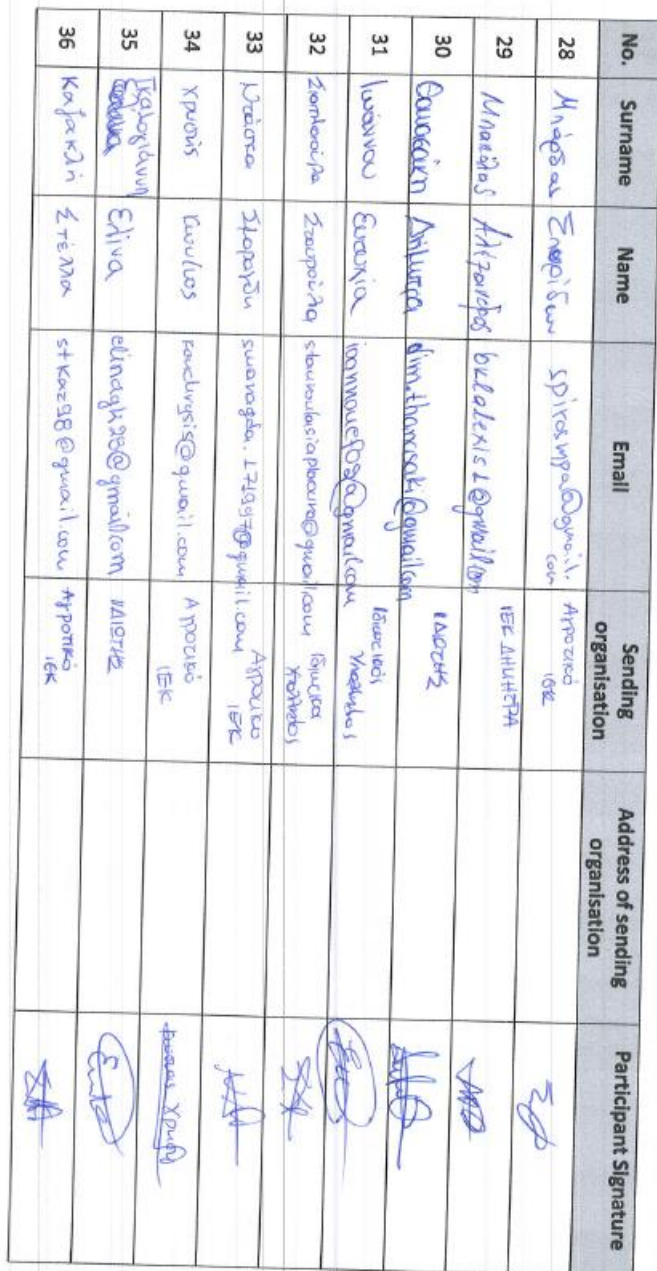 No. Surname Name Email Sending organisation Address of sending organisation Participant Signature
28 Μπάρδας Σπυρίδων spirosmpa@gmail.com Αγροτικό ΙΕΚ
29 Μπακόλας Αλέξανδρος bklalexis1@gmail.com ΙΕΚ ΔΗΜΗΤΡΑ
30 Θανασάκη Δήμητρα dim.thanasaki@gmail.com ΙΔΙΩΤΗΣ
31 Ιωάννου Ευτυχία Ιδιωτικός Υπάλληλος
32 Σταυρούλα Ιδιωτικός Υπάλληλος
33 Ντάσκα Σμαραγδή smaragda.171997@gmail.com Αγροτικό ΙΕΚ
34 Χρυσής Κων/νος konchrysis@gmail.com Αγροτικό ΙΕΚ
35 Γκαλογιάννη Ελίνα elinagk29@gmail.com ΙΔΙΩΤΗΣ
36 Καζακλή Στέλλα stkaz98@gmail.com Αγροτικό ΙΕΚ